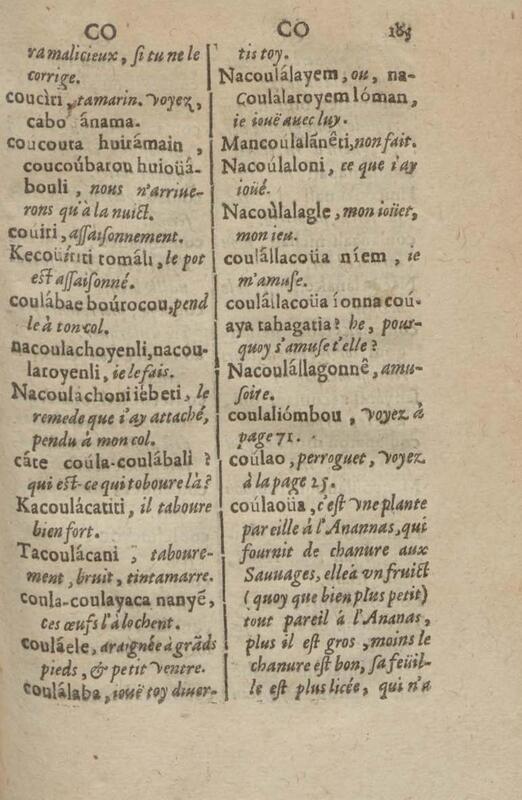 CO
ra malicieux, si tu ne le
corrige.
coucìri, tamarin. voyez,
cabo ânama.
coucouta huirámain,
coucoúbatou huioüâ-
bouli, nous n'arriue-
rons qu'à la nuict.
coúiti, assaisonnement.
Kecoúïtiti tomáli, le pot
est assaisonné.
coulábae boúrocou, pend
le à ton col.
nacoulachoyenli, nacou-
latoyenli, ie le fais.
Nacoulàchoni iébeti, le
remede que i'ay attaché,
pendu à mon col.
câte coúla-coulábali?
qui est-ce qui taboure là?
Kacoulácatiti, il taboure
bien fort.
Tacoulácani, taboure-
ment, bruit, tintamarre.
coula-coulayaca nanyẽ,
ces œufs l'à lochent.
couláele, araignée à grãds
pieds, & petit ventre.
coulálaba, iouë toy diuer-
CO
185
tis toy.
Nacoulálayem, ou, na-
coulalatoyem lóman,
ie iouë auec luy.
Mancoulalánêti, non fait.
Nacoúlaloni, ce que i'ay
ioüé.
Nacoùlalagle, mon ioüet,
mon ieu.
coulállacoüa níem, ie
m'amuse.
coulállacoüa íonna coú-
aya tahagatia? he, pour-
quoy s'amuse t'elle?
Nacoulállagonnê, amu-
soire.
coulaliómbou, voyez à
page 71.
coúlao, perroguet, voyez
à la page 25.
coúlaoüa, c'est vne plante
pareille à l'Anannas, qui
fournit de chanure aux
Sauuages, elle à vn fruict
(quoy que bien plus petit)
tout pareil à l'Ananas,
plus il est gros, moins le
chanure est bon, sa feüil-
le est plus licée, qui n'a